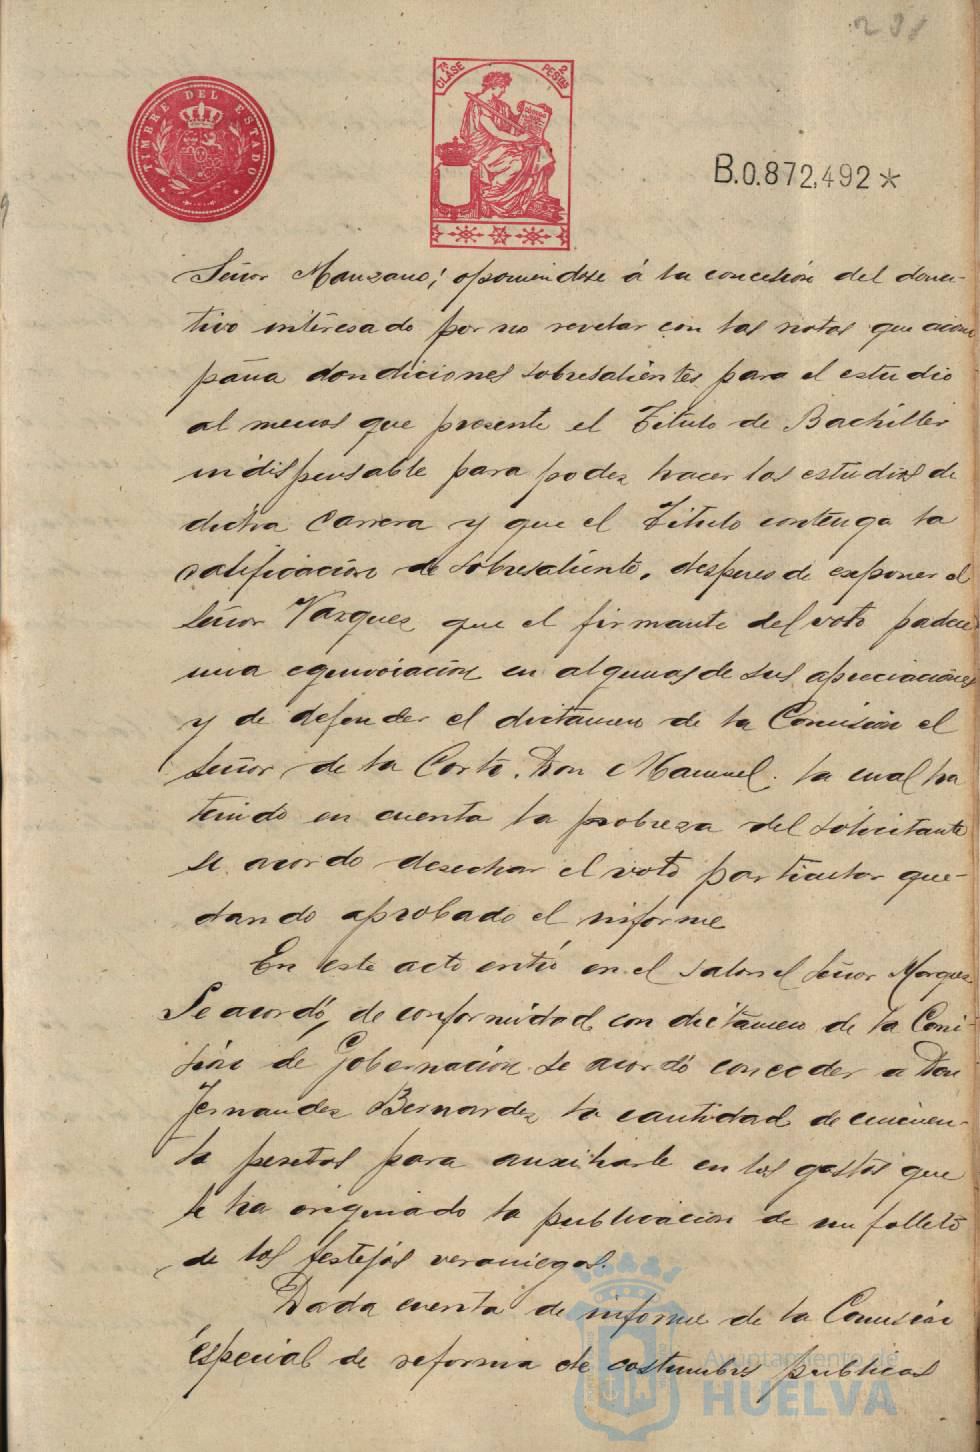 231
TIMBRE DEL ESTADO
7ª CLASE 2 PESTAS
B.0.872,492*
Señor Manzano; oponiendose á la concesión del dona-
tivo interesado por no revelar con las notas que acom
paña condiciones sobresalientes para el estudio
al menos que presente el Título de Bachiller
indispensable para poder hacer los estudios de
dicha Carrera y que el Título contenga la
calificación de Sobresaliente, despues de exponer el
Señor Vazquez que el firmante del voto padece
una equivocación en algunas de sus apreciaciones
y de defender el dictamen de la Comisión el
Señor de la Corte Don Manuel. la cual ha
tenido en cuenta la pobreza del solicitante
se acordo desechar el voto particular que-
dando aprobado el informe
En este acto entró en el salon el Señor Marquez
Se acordó, de conformidad con dictamen de la Comi-
sión de Gobernación se acordó conceder a Don
Fernandez Bernardez la cantidad de cincuen-
ta pesetas para auxiliarle en los gastos que
le ha originado la publicacion de un folleto
de los festejos veraniegos.
Dada cuenta de informe de la Comisión
especial de reforma de costumbres publicas
Ayuntamiento de
HUELVA